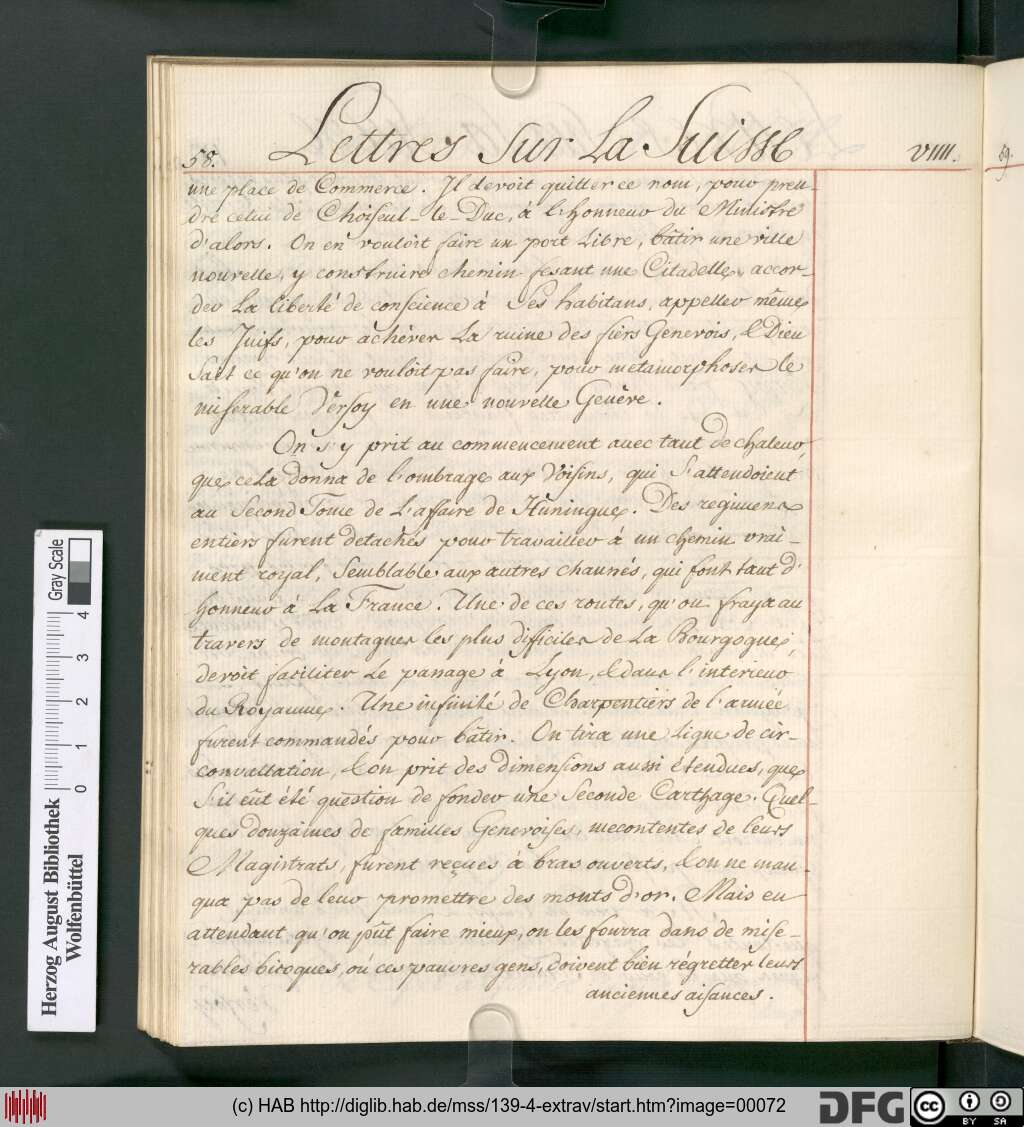 58. Lettres Sur La Suisse VIIII.
59.
une place de Commerce. Il devoit quitter ce nom, pour pren-
dre celui de Choiseul-le-Duc, à l'honneur du Ministre
d'alors. On en vouloit faire un port Libre, bâtir une ville
nouvelle, y construire chemin fesant une Citadelle, accor-
der La liberté de conscience à Ses habitans, appeller même
les Juifs, pour achêver La ruine des fiers Genevois, & Dieu
Sait ce qu'on ne vouloit pas faire, pour metamorphoser le
miserable Versoy en une nouvelle Genêve.
On s'y prit au commencement avec tant de chaleur,
que cela donna de l'ombrage aux Voisins, qui S'attendoient
au Second Tome de L'affaire de Huningue. Des regimens
entiers furent detachés pour travailler à un chemin vrai-
ment royal, Semblable aux autres chaussés, qui font tant d'
honneur à La France. Une de ces routes, qu'on fraya au
travers de montagnes les plus difficiles de La Bourgogne,
devoit faciliter Le passage à Lyon, & dans l'interieur
du Royaume. Une infinité de Charpentiers de l'armée
furent commandés pour bâtir. On tira une ligne de cir-
convallation, & on prit des dimensions aussi étendues, que
S'il eût été question de fonder une Seconde Carthage. Quel-
ques douzaines de familles Genevoises, mecontentes de leurs
Magistrats, furent reçues à bras ouverts, & on ne man-
qua pas de leur promettre des monts d'or. Mais en
attendant qu'on pût faire mieux, on les fourra dans de mise-
rables bicoques, où ces pauvres gens, doivent bien régretter leurs
anciennes aisances.
Herzog August Bibliothek
Wolfenbüttel
0 1 2 3 4
Gray Scale
(c) HAB http://diglib.hab.de/mss/139-4-extrav/start.htm?image=00072
DFG
cc BY SA